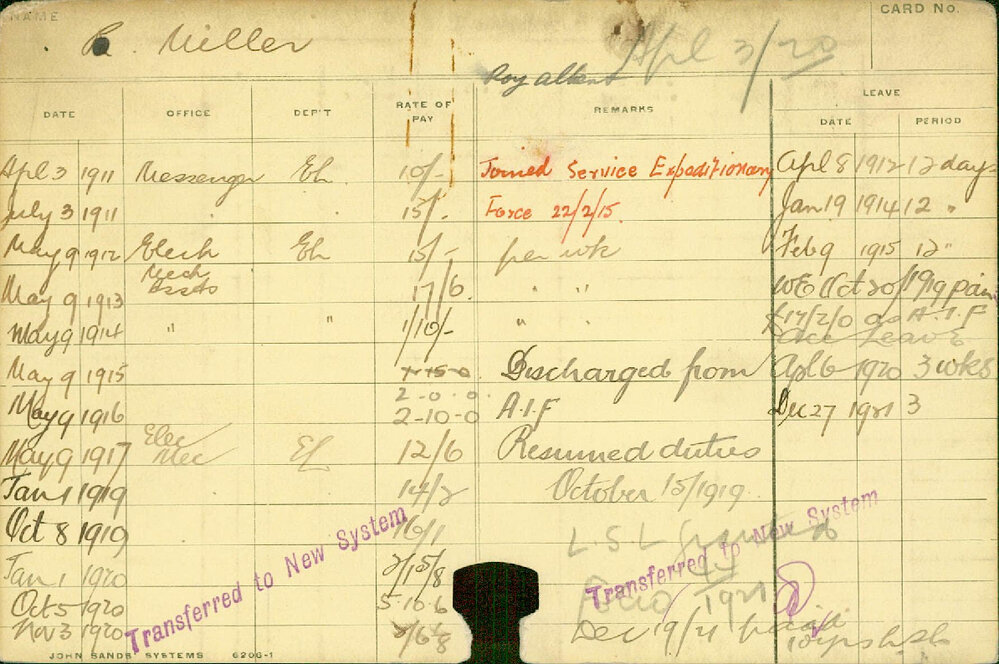 NAME
R. Miller
Apl 3/20
CARD No.
Roy Albert
DATE OFFICE DEP'T RATE OF PAY REMARKS LEAVE
DATE PERIOD
Apl 3 1911 Messenger Eh 10/- Joined Service Expeditionary Apl 8 1912 12 days
July 3 1911 15/- Force 22/2/15. Jan 19 1914 12 "
May 9 1912 Elech Eh 15/- per wk Feb 9 1915 12 "
Mech
May 9 1913 Assts 17/6 " " WE Oct 20/1919 paid
£17/2/0 as A.I.F
May 9 1914 " " 1/10/- " " Acc Leave
May 9 1915 1-15-0 Discharged from Apl 6 1920 3 wks
2-0-0
May 9 1916 2-10-0 A.I.F Dec 27 1921 3
Elec
May 9 1917 Mec El 12/6 Resumed duties
Jan 1 1919 14/2 October 15/1919
Oct 8 1919 16/1 L.S.L Granted
Jan 1 1920
Oct 5 1920 5-10-6 1921
Nov 3 1920 Dec 19/21
Transferred to New System
Transferred to New System
JOHN SANDS SYSTEMS 6206-1